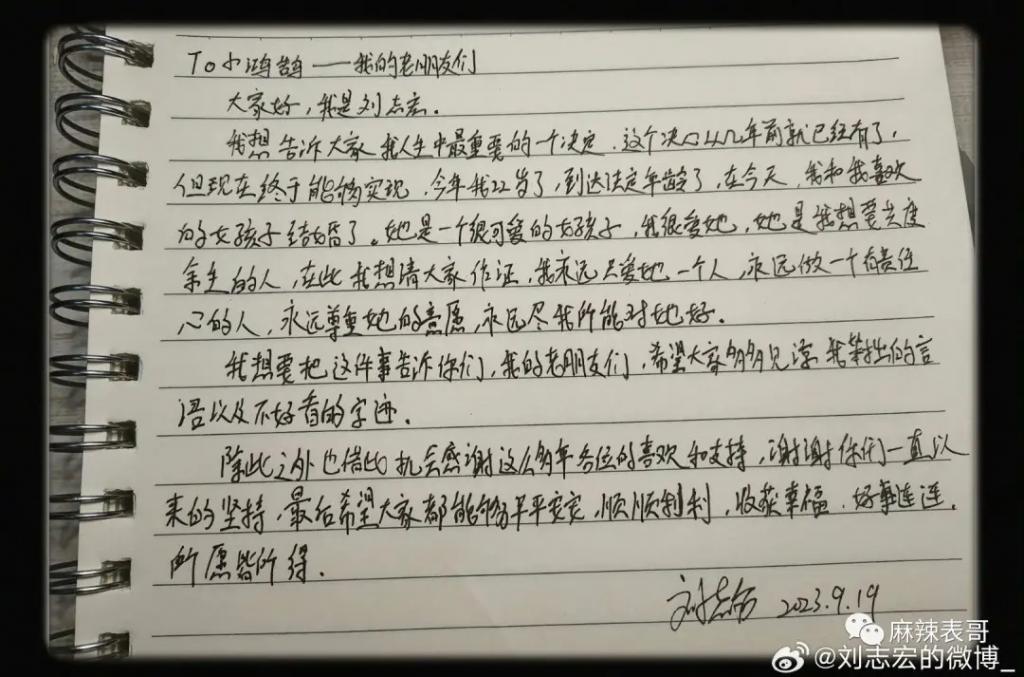 To 小鸿鹄——我的老朋友们
大家好，我是刘志宏．
我想告诉大家我人生中最重要的一个决定．这个决心从几年前就已经有了，
但现在终于能够实现．今年我22岁了，到达法定年龄了，在今天，我和我喜欢
的女孩子结婚了。她是一个很可爱的女孩子，我很爱她，她是我想要共度
余生的人，在此我想请大家作证，我永远只爱她一个人，永远做一个有责任
心的人，永远尊重她的意愿，永远尽我所能对她好．
我想要把这件事告诉你们，我的老朋友们，希望大家多多见谅我笨拙的言
语以及不好看的字迹．
除此之外也借此机会感谢这么多年各位的喜欢和支持，谢谢你们一直以
来的坚持，最后希望大家都能够平平安安，顺顺利利，收获幸福．好事连连，
所愿皆所得．
刘志宏 2023.9.19
麻辣表哥
@刘志宏的微博_